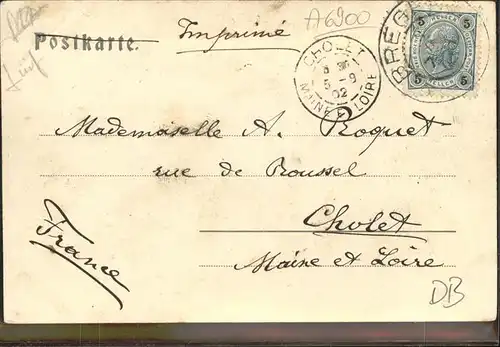 A6200
Postkarte. Imprimé
CHOLET
3 36
5 - 9
02
MAINE-LOIRE
BREG
5 5
5 HELLER 5
Mademoiselle A. Roquet
rue de Roussel
Cholet
Maine et Loire
France
DB